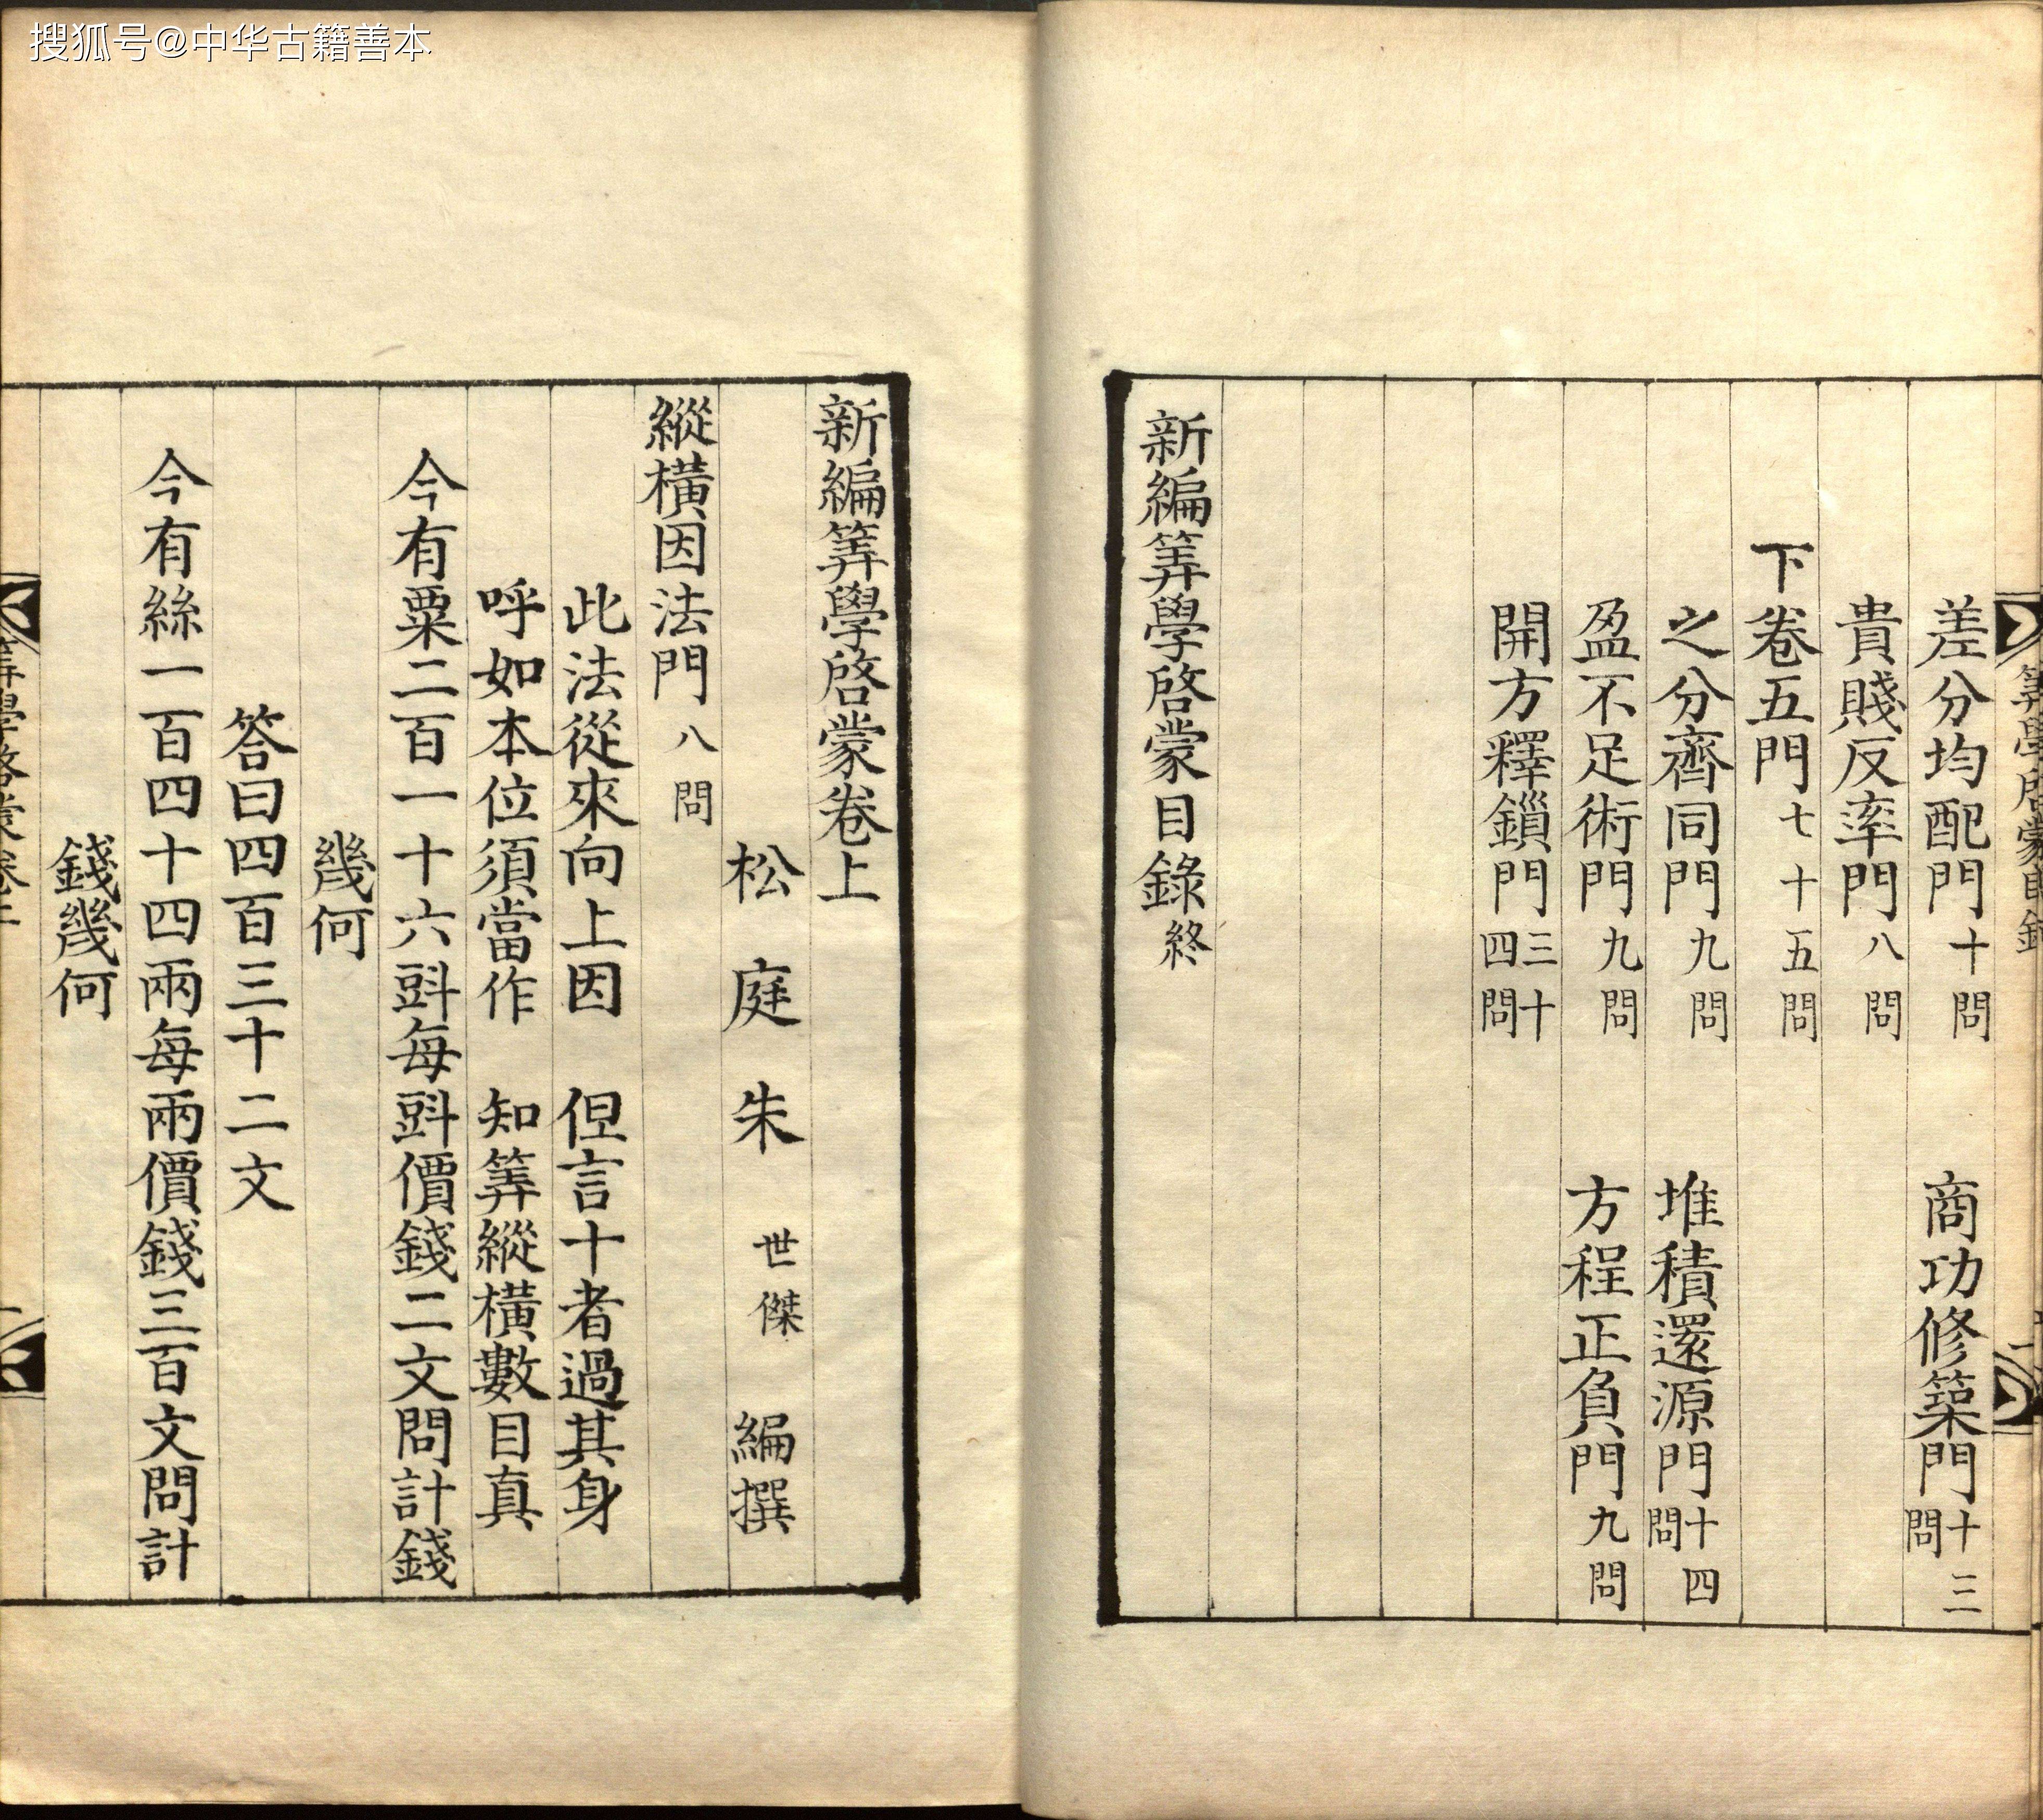 搜狐号@中华古籍善本
算學啓蒙目錄
差分均配門十問 商功修築門十三問
貴賤反率門八問
下卷五門七十五問
之分齊同門九問 堆積還源門十四問
盈不足術門九問 方程正負門九問
開方釋鎖門三十四問
新編筭學啓蒙目錄終
新編筭學啓蒙卷上
松庭朱世傑編撰
縱橫因法門八問
此法從來向上因 但言十者過其身
呼如本位須當作 知筭縱橫數目真
今有粟二百一十六㪷每㪷價錢二文問計錢
幾何
答曰四百三十二文
今有絲一百四十四兩每兩價錢三百文問計
錢幾何
筭學啓蒙卷上